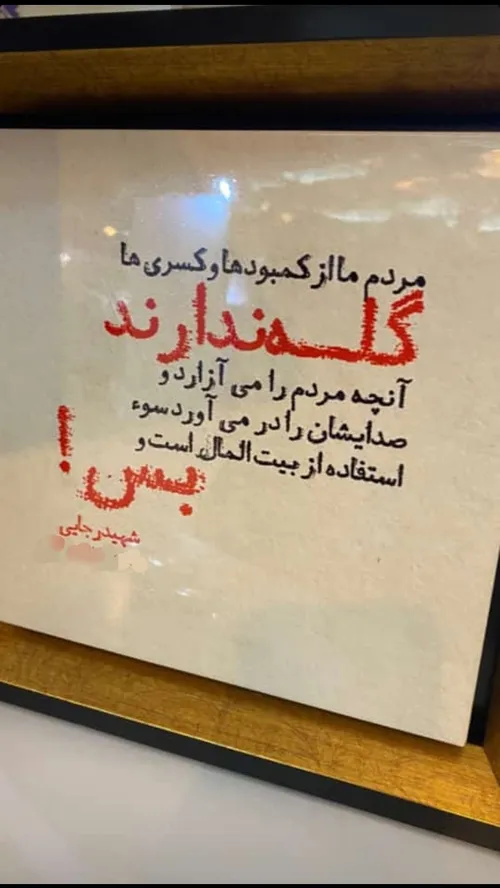 مردم ما از کمبودها و کسری ها
گله ندارند
آنچه مردم را می آزارد و
صدایشان را در می آورد سوء
استفاده از بیت المال است و
بس!
شهید رجایی